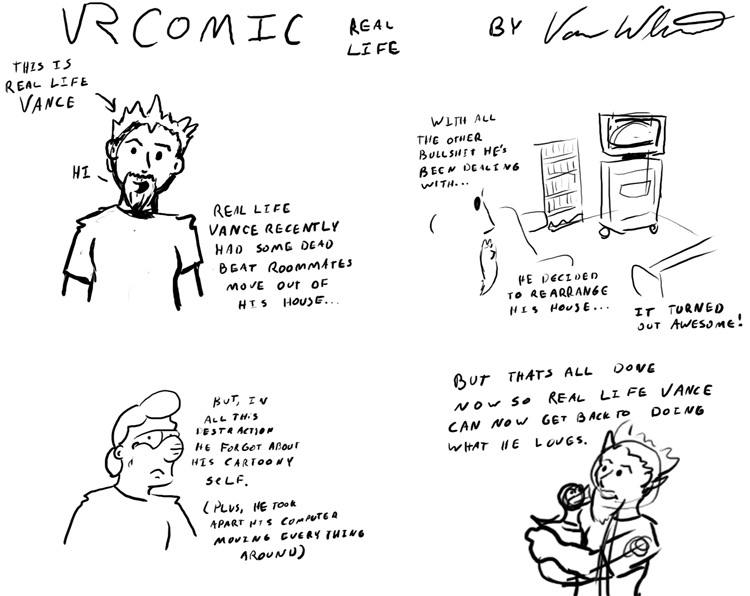 VR COMIC
REAL
LIFE
BY
THIS IS
REAL LIFE
VANCE
HI
REAL LIFE
VANCE RECENTLY
HAD SOME DEAD
BEAT ROOMMATES
MOVE OUT OF
HIS HOUSE...
WITH ALL
THE OTHER
BULLSHIT HE'S
BEEN DEALING
WITH...
HE DECIDED
TO REARRANGE
HIS HOUSE...
IT TURNED
OUT AWESOME!
BUT, IN
ALL THIS
DESTRACTION
HE FORGOT ABOUT
HIS CARTOONY
SELF.
(PLUS, HE TOOK
APART HIS COMPUTER
MOVING EVERYTHING
AROUND)
BUT THATS ALL DONE
NOW SO REAL LIFE VANCE
CAN NOW GET BACK TO DOING
WHAT HE LOVES.